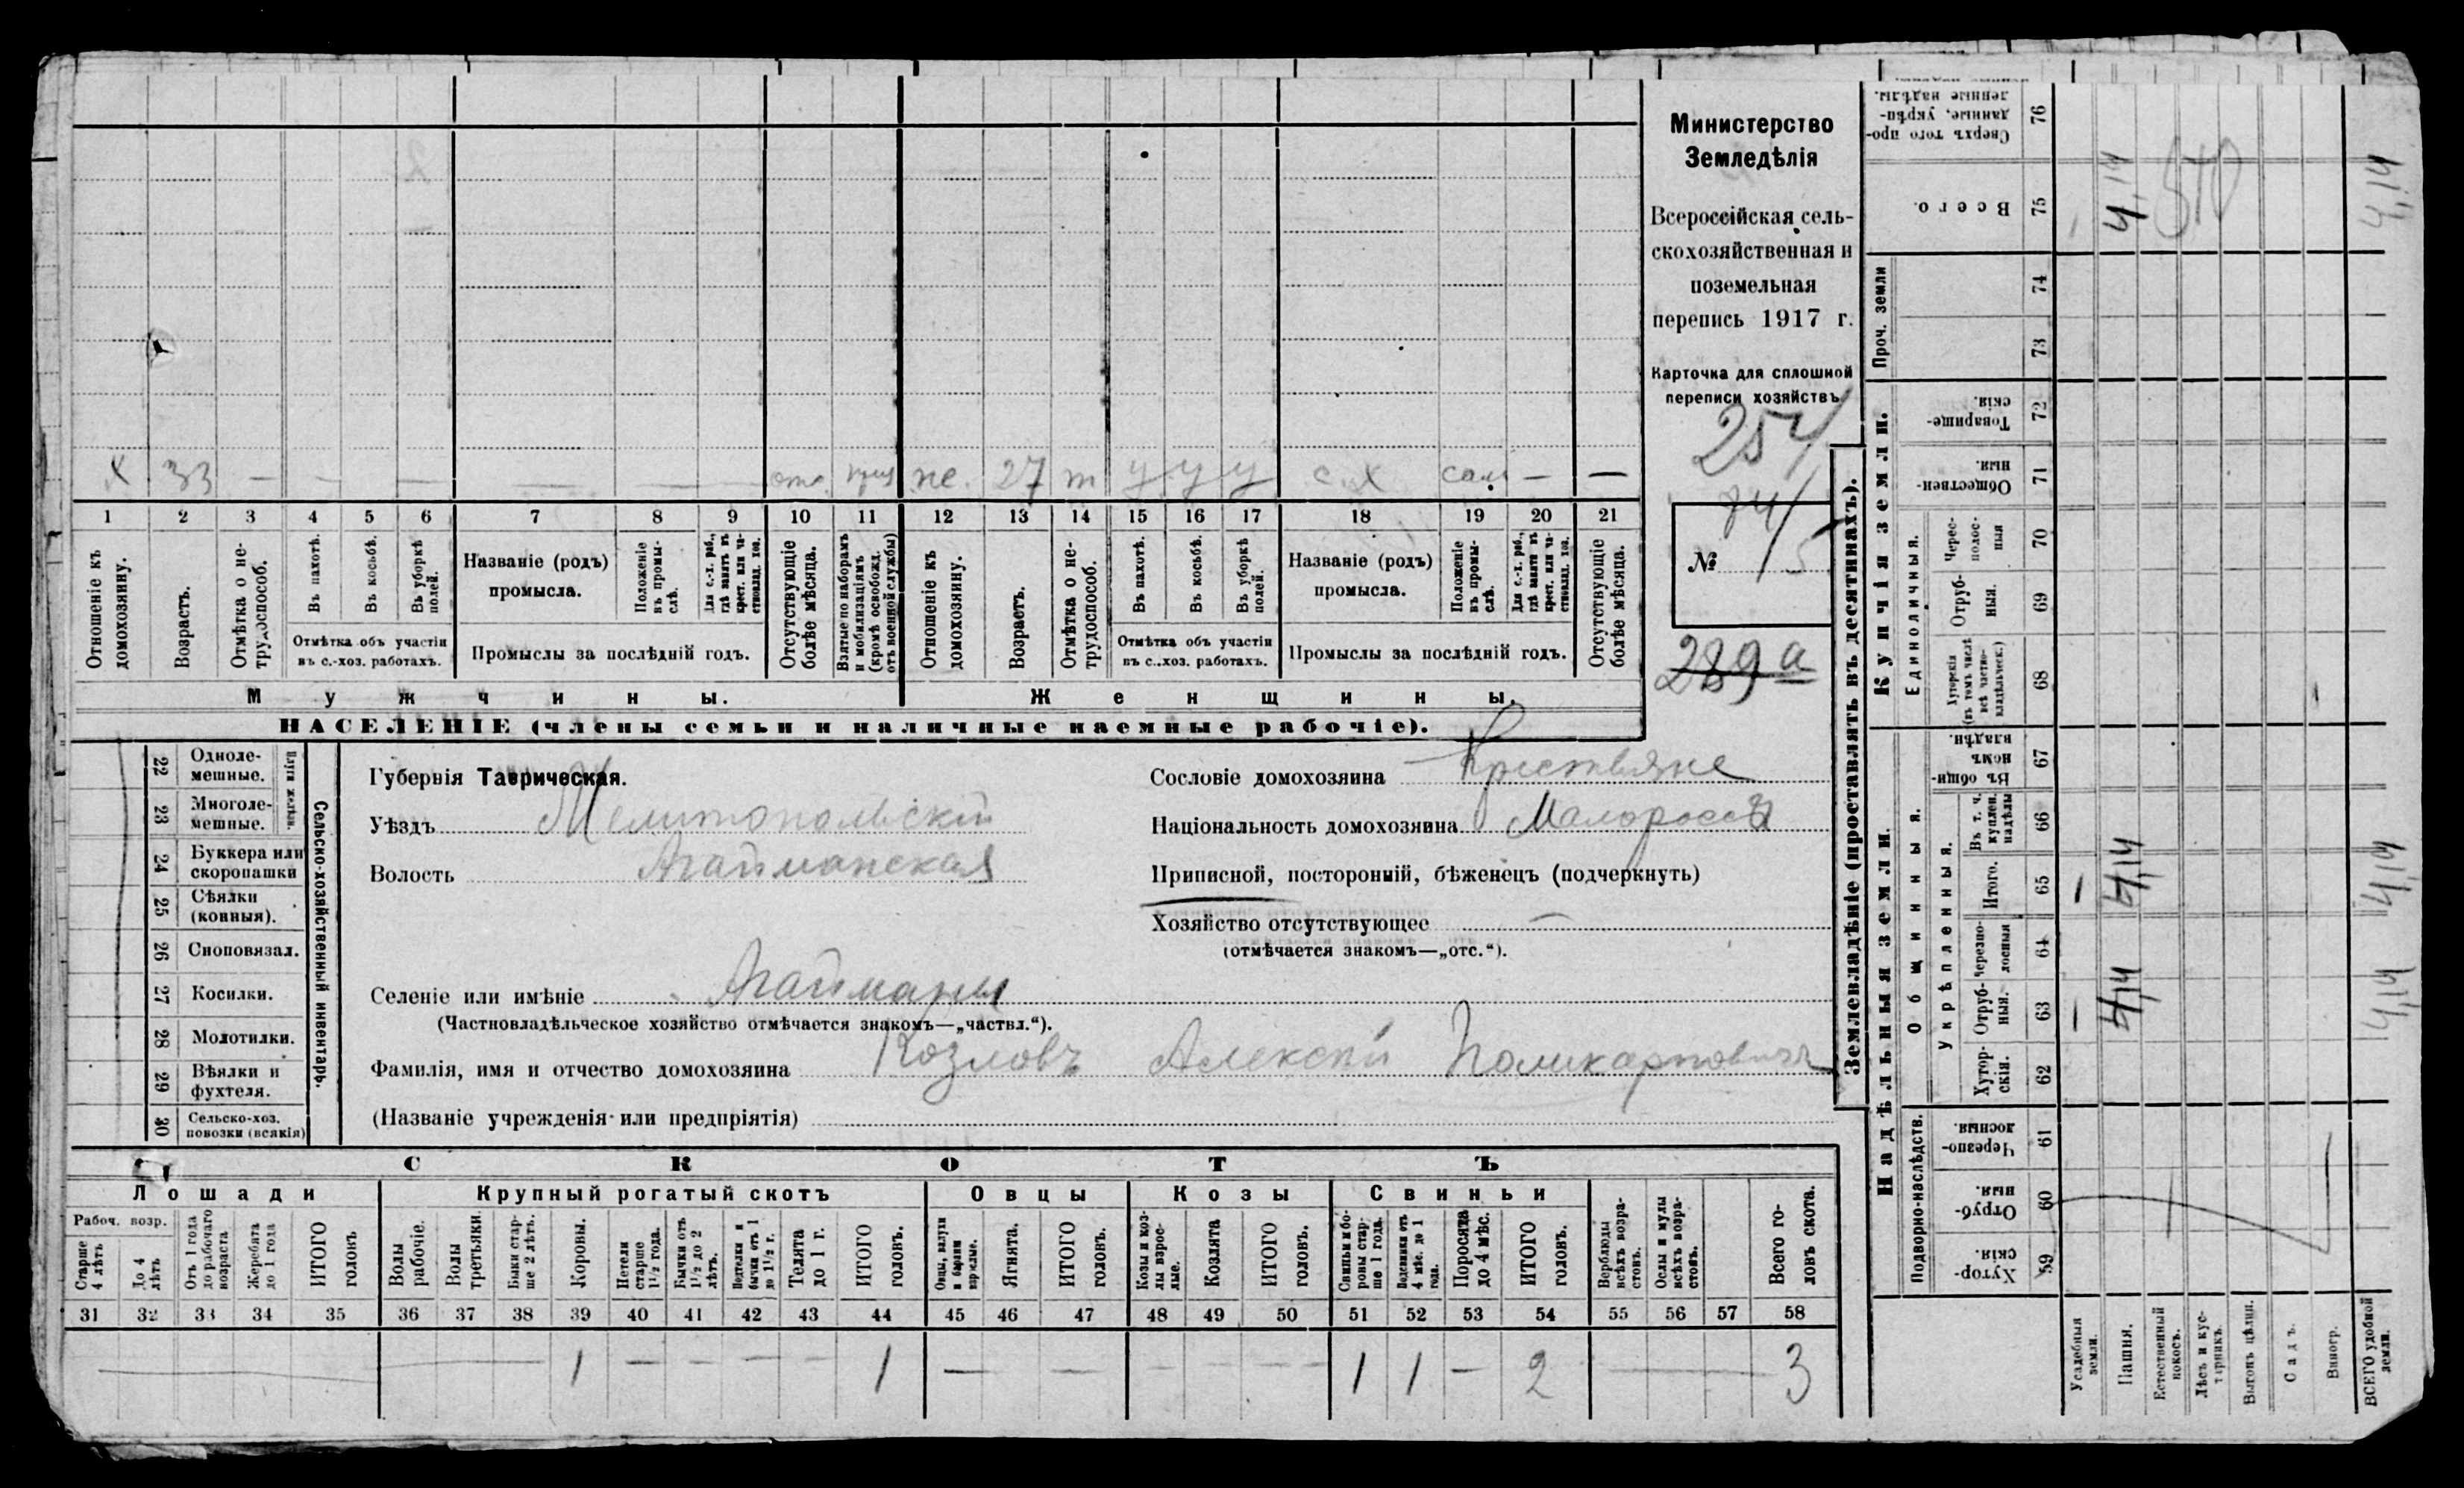 Министерство
Земледѣлія
Всероссійская сель-
скохозяйственная и
поземельная
перепись 1917 г.
Карточка для сплошной
переписи хозяйствъ
254
74/5
№
289 а
Х 33 — — — — — — — отс. приз
же. 27 т у у у с. х сам — —
1 2 3 4 5 6 7 8 9 10 11 12 13 14 15 16 17 18 19 20 21
Отношеніе къ домохозяину.
Возрастъ.
Отмѣтка о не-трудоспособ.
Въ пахотѣ.
Въ косьбѣ.
Въ уборкѣ полей.
Отмѣтка объ участіи
въ с.-хоз. работахъ.
Названіе (родъ)
промысла.
Положеніе въ промы-слѣ.
Для с.-х. раб., гдѣ занятъ въ крест. или ча-стновлад. хоз.
Промыслы за послѣдній годъ.
Отсутствующіе болѣе мѣсяца.
Взятые по наборамъ и мобилизаціямъ (кромѣ освобожд. отъ военной службы)
Отношеніе къ домохозяину.
Возрастъ.
Отмѣтка о не-трудоспособ.
Въ пахотѣ.
Въ косьбѣ.
Въ уборкѣ полей.
Отмѣтка объ участіи
въ с.-хоз. работахъ.
Названіе (родъ)
промысла.
Положеніе въ промы-слѣ.
Для с.-х. раб., гдѣ занятъ въ крест. или ча-стновлад. хоз.
Промыслы за послѣдній годъ.
Отсутствующіе болѣе мѣсяца.
Мужчины.
Женщины.
НАСЕЛЕНІЕ (члены семьи и наличные наемные рабочіе).
Сельско-хозяйственный инвентарь.
Плуги желѣзн.
22 Одноле-мешные.
23 Многоле-мешные.
24 Буккера или скоропашки
25 Сѣялки (конныя).
26 Сноповязал.
27 Косилки.
28 Молотилки.
29 Вѣялки и фухтеля.
30 Сельско-хоз. повозки (всякія)
Губернія Таврическая.
Уѣздъ Мелитопольскій
Волость Агайманская
Селеніе или имѣніе Агайманы
(Частновладѣльческое хозяйство отмѣчается знакомъ—„частвл.“).
Фамилія, имя и отчество домохозяина Козловъ Алексѣй Поликарповичъ
(Названіе учрежденія или предпріятія)
Сословіе домохозяина Крестьяне
Національность домохозяина Малороссъ
Приписной, посторонній, бѣженецъ (подчеркнуть)
Хозяйство отсутствующее —
(отмѣчается знакомъ—„отс.“).
СКОТЪ
Лошади
Крупный рогатый скотъ
Овцы
Козы
Свиньи
Рабоч. возр.
Старше 4 лѣтъ
До 4 лѣтъ
Отъ 1 года до рабочаго возраста
Жеребята до 1 года
ИТОГО головъ
Волы рабочіе.
Волы третьяки.
Быки стар-ше 2 лѣтъ.
Коровы.
Нетели старше 1½ года.
Бычки отъ 1½ до 2 лѣтъ.
Подтелки и бычки отъ 1 до 1½ г.
Телята до 1 г.
ИТОГО головъ.
Овцы, валухи и бараны взрослые.
Ягнята.
ИТОГО головъ.
Козы и коз-лы взрос-лые.
Козлята
ИТОГО головъ.
Свиньи и бо-ровы стар-ше 1 года.
Подсвинки отъ 4 мѣс. до 1 года.
Поросята до 4 мѣс.
ИТОГО головъ.
Верблюды всѣхъ возра-стовъ.
Ослы и мулы всѣхъ возра-стовъ.
Всего го-ловъ скота.
31 32 33 34 35 36 37 38 39 40 41 42 43 44 45 46 47 48 49 50 51 52 53 54 55 56 57 58
— — 1 — — — — 1 — — — — — — 1 1 — 2 — 3
Землевладѣніе (проставлять въ десятинахъ).
Надѣльныя земли.
Подворно-наслѣдств.
Хутор-скія. 59
Отруб-ныя. 60
Черезпо-лосныя. 61
Общинныя.
Укрѣпленныя.
Хутор-скія. 62
Отруб-ныя. 63
Черезпо-лосныя 64
Итого. 65
Въ т. ч. куплен. надѣлы 66
Въ общин-номъ владѣн. 67
Купчія земли.
Единоличныя.
Хуторскія (въ томъ числѣ всѣ частно-владѣльческ.) 68
Отруб-ныя. 69
Черес-полос-ныя 70
Обществен-ныя. 71
Товарище-скія. 72
Проч. земли
73
74
Всего. 75
Сверхъ того про-данные, укрѣп-ленные надѣлы. 76
Усадебныя земли. — —
Пашня. 4,14 4,14 4,14
Естественный покосъ. 540
Лѣсъ и кус-тарникъ.
Выгонъ цѣлин.
Садъ.
Виногр.
ВСЕГО удобной земли. 4,14 4,14 4,14